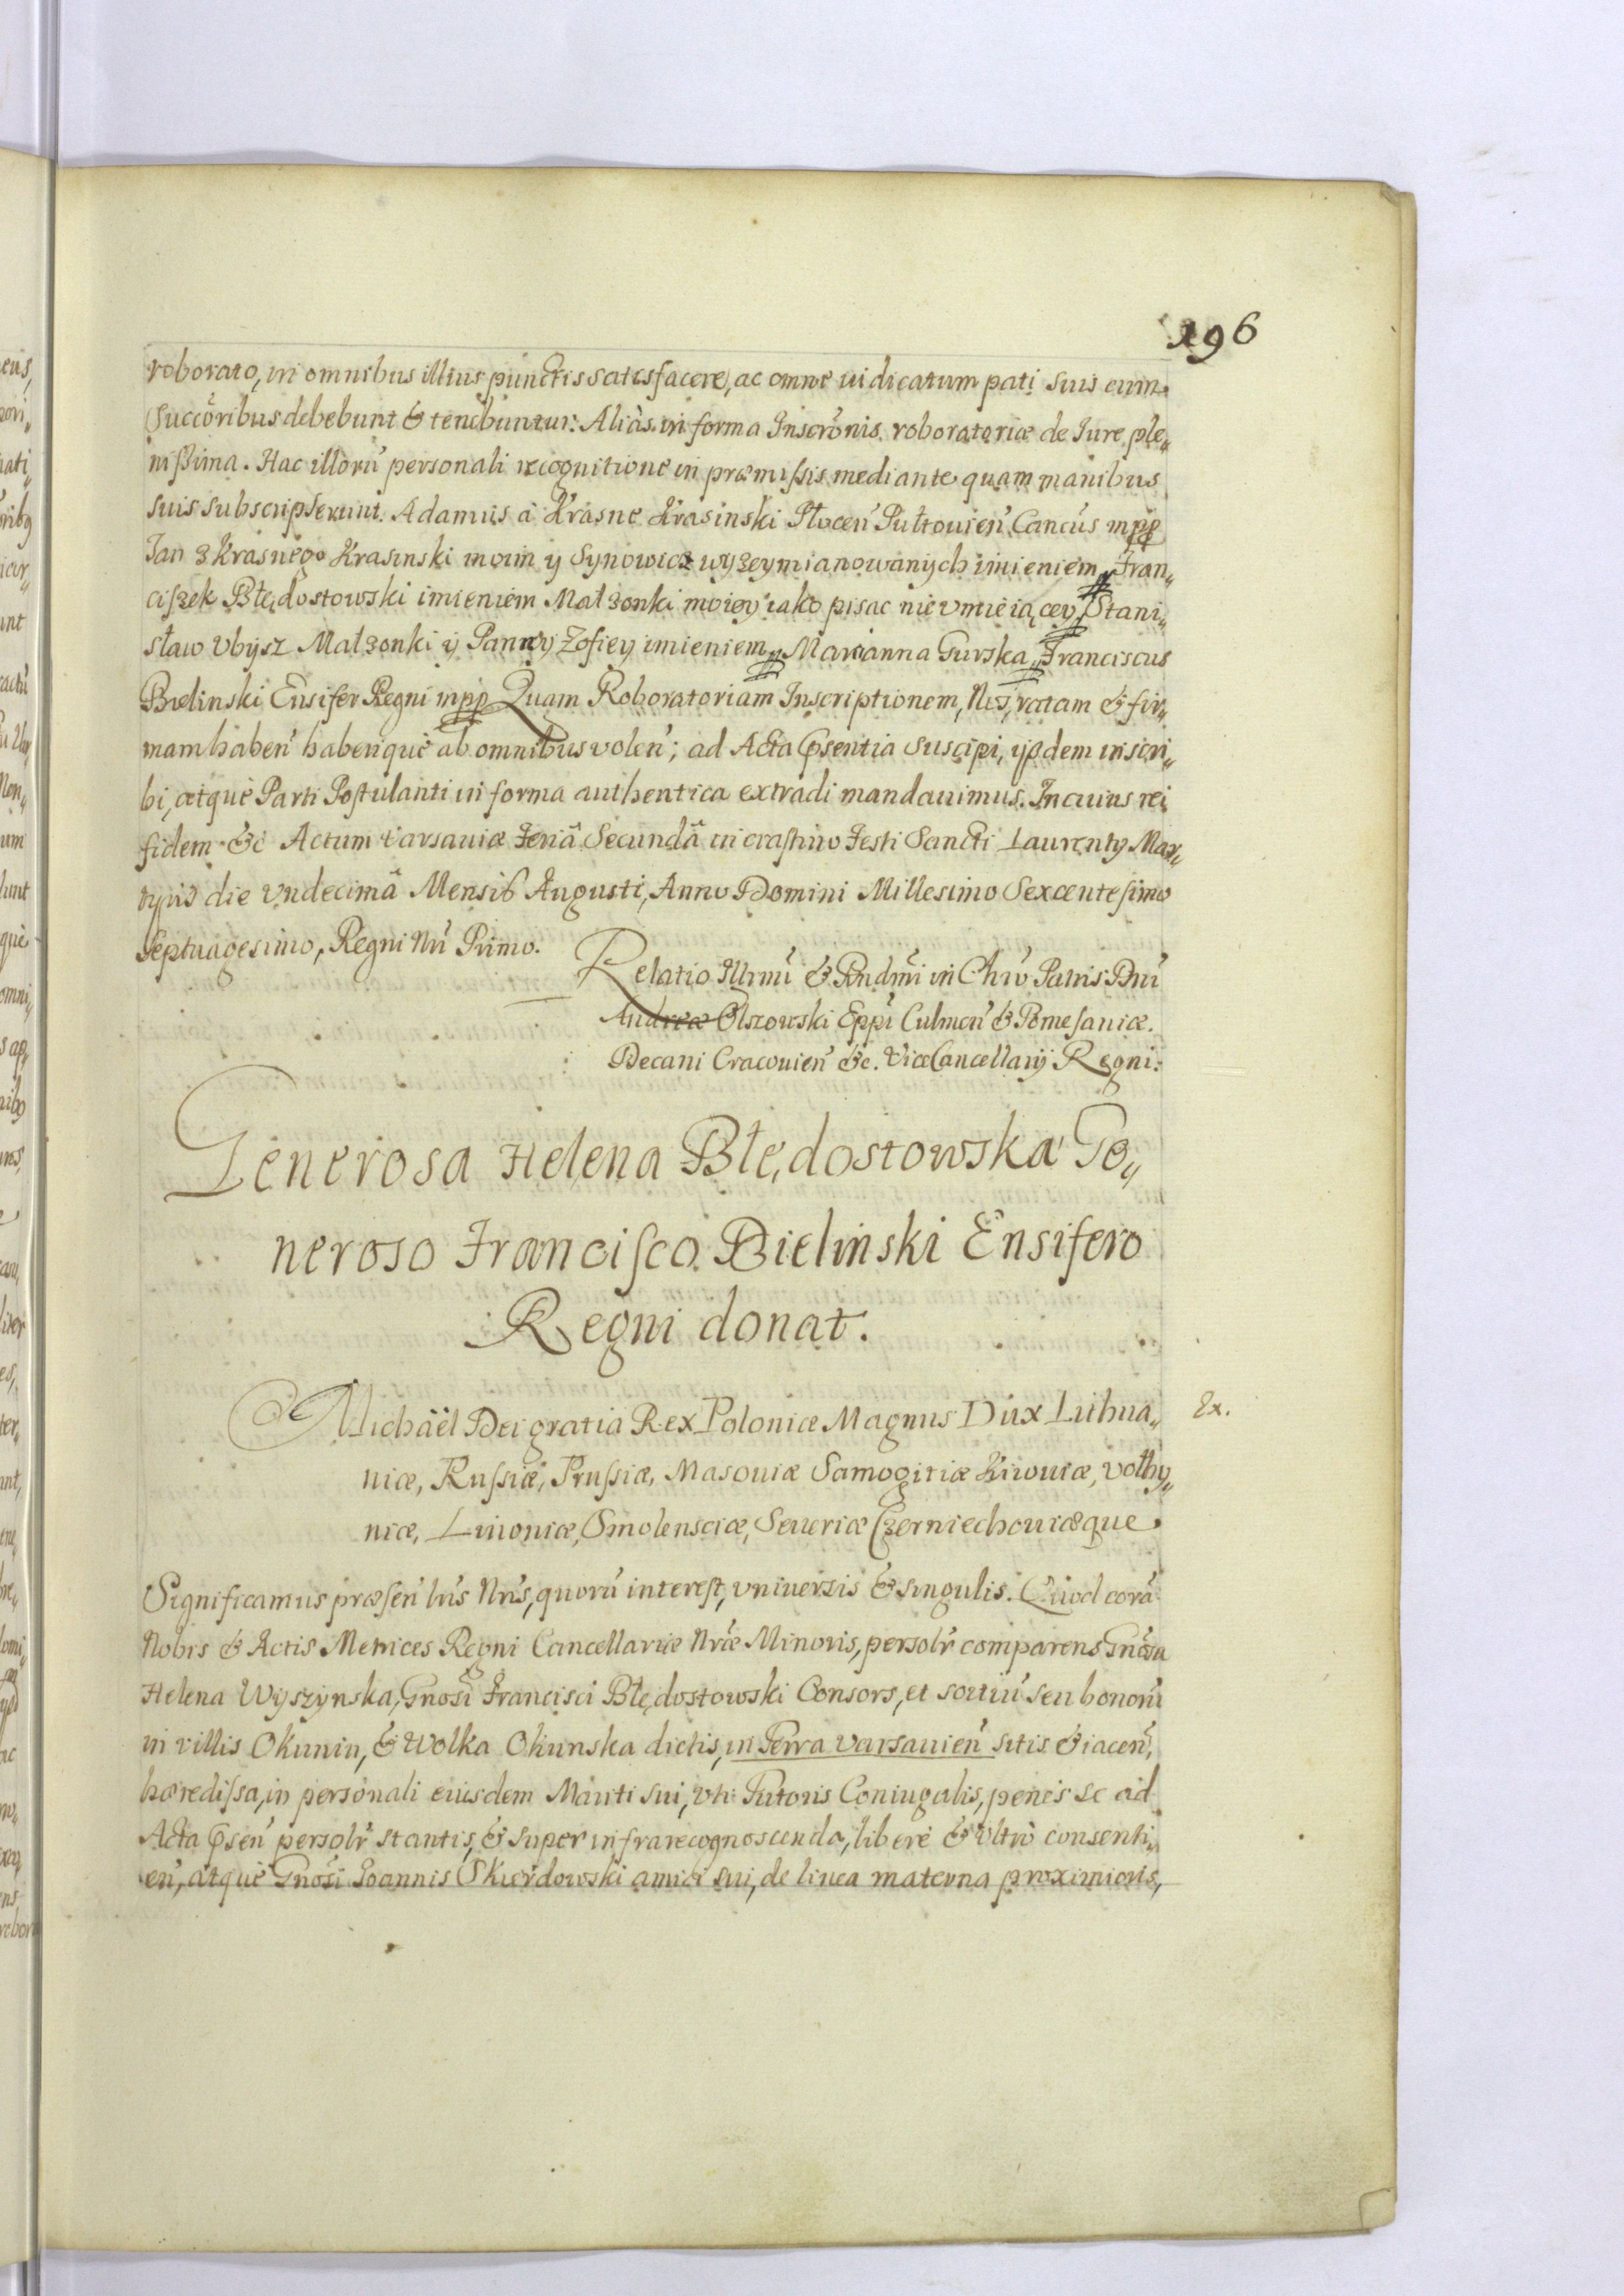 196
roborato, in omnibus illius punctis satisfacere, ac omne iudicatum pati suis cum
Succōribus debebunt & tenebuntur: Aliàs in forma Inscrōnis roboratoriæ de Iure ple„
nißima. Hac illorū personali recognitione in præmißis mediante quam manibus
suis subscripserunt. Adamus à Krasne Krasinski Płocen̄ Pułtouien̄ Cancūs mpp
Jan z Krasnego Krasinski moim y Synowicz wyzeymianowanych imieniem, Fran„
ciszek Błędostowski imieniem Małżonki moiey iako pisac nie vmieiącey, Stani„
sław Vbysz Małżonki y Panny Zofiey imieniem, Marianna Gurska, Franciscus
Bielinski Ensifer Regni mpp Quam Roboratoriam Inscriptionem, Nos, ratam & fir„
mam haben̄ haberiquè ab omnibus volen̄; ad Acta p̄sentia suscipi, ijsdem inscri„
bi, atquè Parti Postulanti in forma authentica extradi mandauimus. In cuius rei
fidem &c Actum Varsauiæ Feriâ Secundâ in crastino Festi Sancti Laurentÿ Mar„
tyris die Vndecimâ Mensis Augusti, Anno Domini Millesimo Sexcentesimo
Septuagesimo, Regni Nrī Primo.
Relatio Illrmī & Rndmī in Chrō Patris Dnī
Andreæ Olszowski Eppī Culmen̄ & Pomesaniæ.
Decani Cracouien̄ &c. ViceCancellarij Regni:
Generosa Helena Błędostowska Ge„
neroso Francisco Bielinski Ensifero
Regni donat.
Ex.
Michaël Dei gratia Rex Poloniæ Magnus Dux Lithua„
niæ, Rußiæ, Prußiæ, Masouiæ Samogitiæ Kiiouiæ, Volhy„
niæ, Liuoniæ, Smolensciæ, Seueriæ Czerniechouiæque.
Significamus præsen̄ lrīs Nrīs, quorū interest, vniuersis & singulis. Quod corā
Nobis & Actis Metrices Regni Cancellariæ Nrǣ Minoris, persolr̄ comparens Gnōsa
Helena Wyszynska, Gnōsi Francisci Błędostowski Consors, et sortiū seu bonorū
in villis Okuniu, & Wolka Okunska dictis, in Terra Varsauien̄ sitis & iacen̄,
hæredissa, in personali eiusdem Mariti sui, vti Tutoris Coniugalis, penès se ad
Acta p̄sen̄ persolr̄ stantis, & super infrarecognoscenda, liberè & Vltrò consenti„
en̄, atquè Gnōsi Ioannis Skierdowski amici sui, de linea materna proximioris,